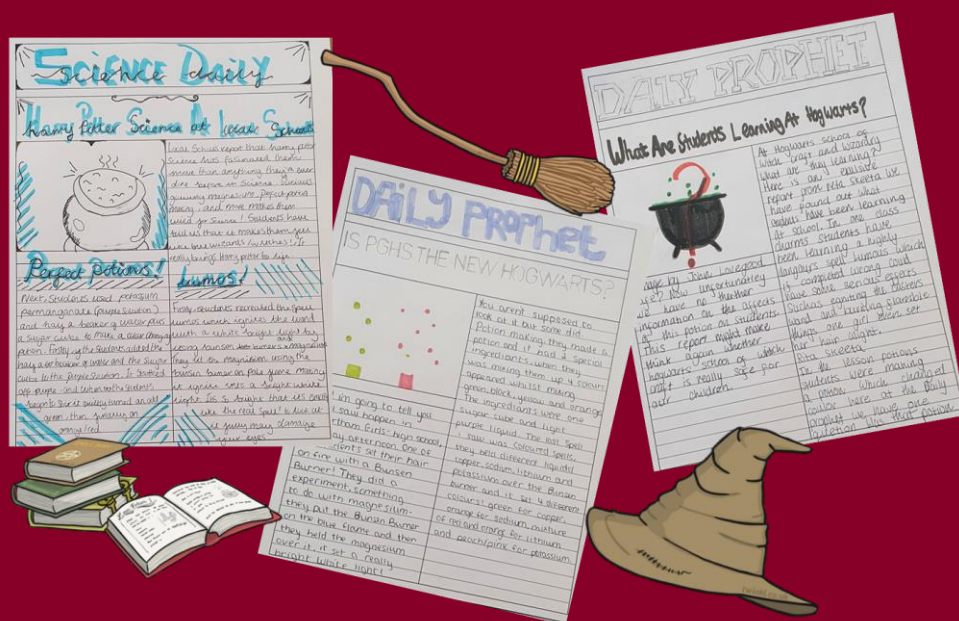 Science Daily
Harry Potter Science at Local School
Local School report that harry potter
science has fascinated them
more than anything they've ever
done before in science. Various
making, and more makes them
told us that it makes them feel
like true wizards/witches! It
really brings Harry Potter to life
Perfect Potions!
Next, Students used potassium
permanganate (purple solution)
and half a beaker of water plus
a sugar cube to make a color changing
potion. Firstly, the students added the
half a of water and the sugar
cube to the purple solution. It started
off purple and when the students
began to stir it slowly turned an odd
green, then finally an
orange/red.
Lumos!
Firstly, students recreated the spell
lumos which ignites the wand
with a white bright light by
using bunsen burners & magnesium
They lit the magnesium using the
bunsen burner on blue flame making
it ignite into a bright white
light. It is bright that its exactly
like the real spell! To look at
it fully may damage
your eyes.
DAILY PROPHET
IS PGHS THE NEW HOGWARTS?
I'm going to tell you
I saw happen in
Girls' high school,
afternoon. One of
set their hair
on fire with a Bunsen
Burner! They did a
Experiment, something
to do with magnesium.
they put the Bunsen Burner
on the blue flame and then
they held the magnesium
over it, it set a really
bright white light!
You arent supposed to
look at it but some did.
Potion making, they made a
potion and it had 2 special
ingredients, when they
was mixing them up 4 colours
appeared whilst mixing
green, black, yellow and orange.
The ingredients were one
sugar cube and light
purple liquid. The last spell
I saw was coloured spells,
they held different liquids/
copper, sodium, lithium and
potassium over the Bunsen
burner and it set 4 different
colours: green for copper,
orange for sodium, mixture
of red and orange for lithium
and peach/pink for potassium.
DAILY PROPHET
What Are Students Learning At Hogwarts?
made by John Lovegood
life? Now unfortunatley
we have no
information on the affects
of this potion on students.
This report might make
think again whether
hogwarts school of witch
craft is really safe for
our children.
At Hogwarts school of
witch craft and wizardry
what are they learning?
Here is an exclusive
report from Rita Skeeta we
have found out what
students have been learning
at school. In one class
charms students have
been learning a highly
dangerous spell lumous which
if completed wrong could
have some serious effects
Such as igniting the casters
wand and burning flamable
things one girl even set
her hair alight.
Rita Skeeta.
In the lesson potions
students were making
a potion which changed
coulor here at the Daily
prophet we have one
question was that potion